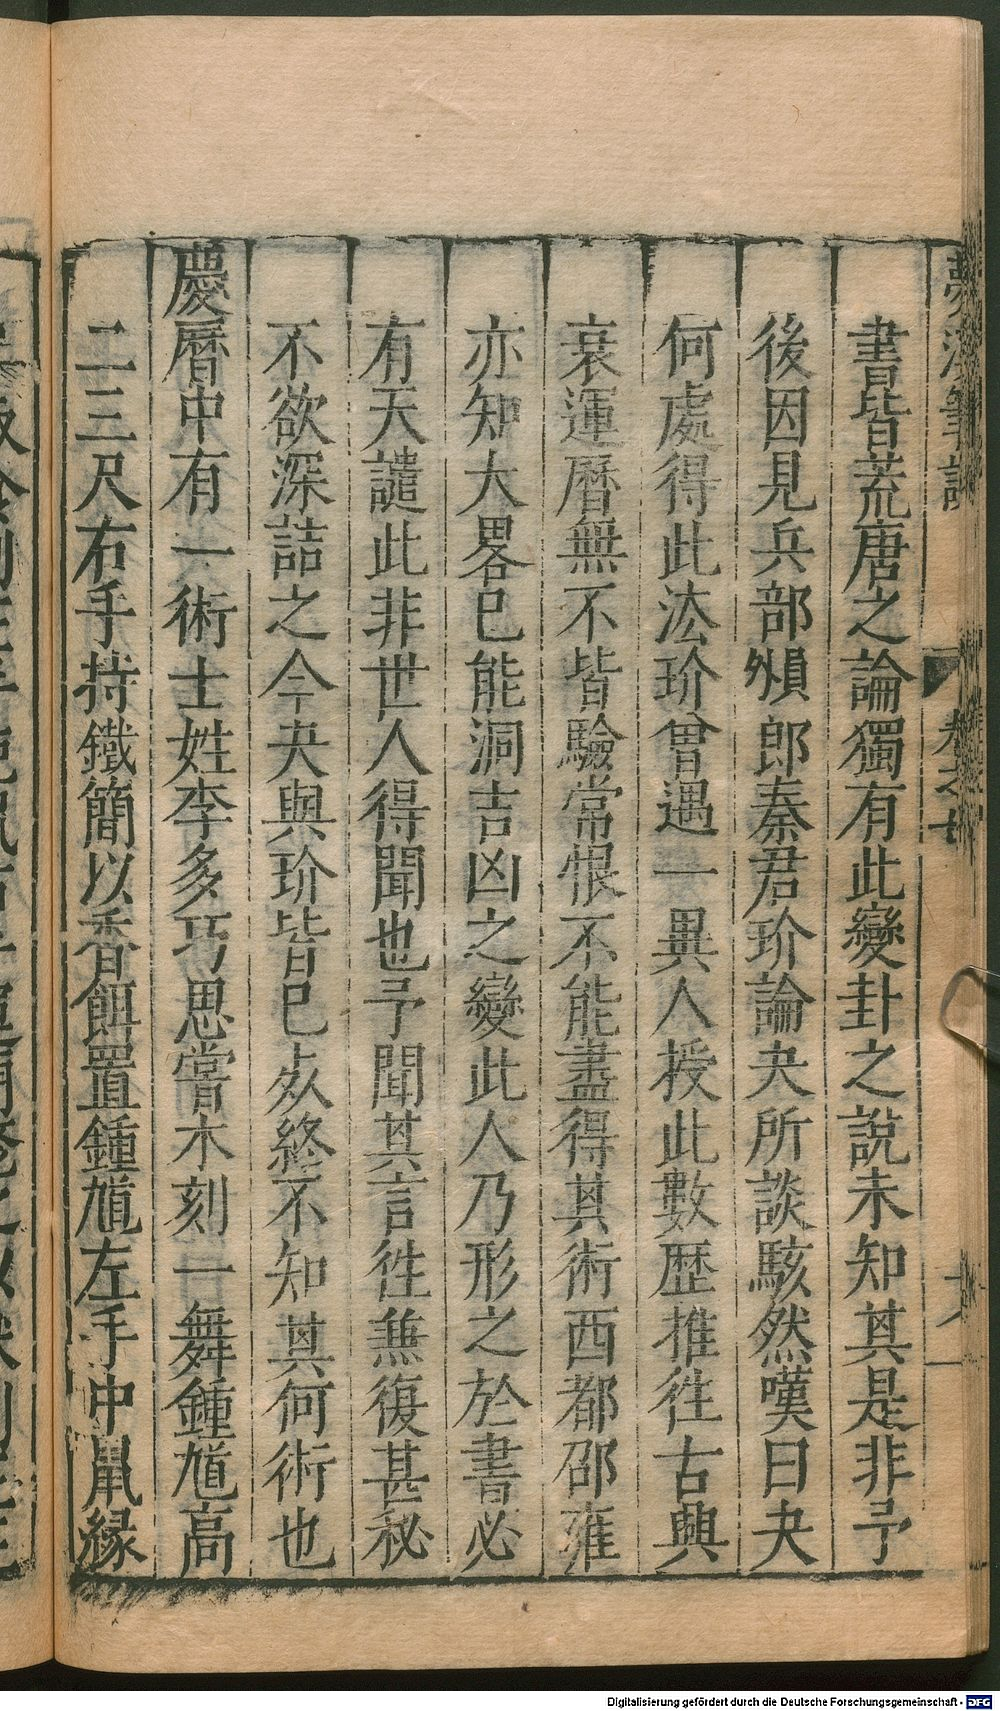 夢溪筆談 卷之七
書皆荒唐之論獨有此變卦之說未知其是非予
後因見兵部外貟郎秦君玠論夬所談駭然嘆曰夬
何處得此㳒玠曾遇一異人授此數歷推徃古興
衰運曆無不皆驗常恨不能盡得其術西都邵雍
亦知大畧已能洞吉凶之變此人乃形之於書必
有天譴此非世人得聞也予聞其言徃兼復甚秘
不欲深詰之今夬與玠皆已㱙終不知其何術也
慶曆中有一術士姓李多巧思甞木刻一舞鍾馗高
二三尺右手持鐵簡以香餌置鍾馗左手中鼠緣
Digitalisierung gefördert durch die Deutsche Forschungsgemeinschaft - DFG